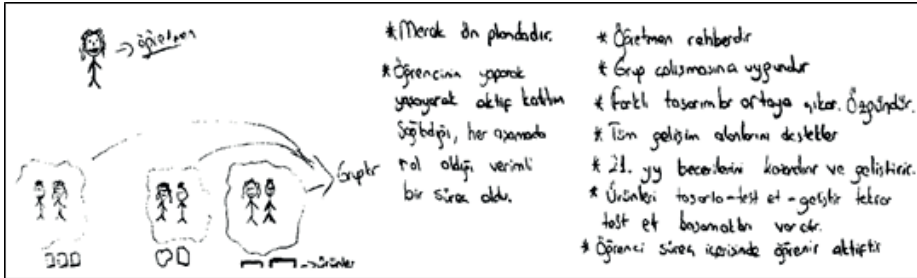 → öğretmen
Gruplar
→ ürünler
* Merak ön plandadır.
* Öğrencinin yaparak
yaşayarak aktif katılım
sağladığı, her aşamada
rol aldığı verimli
bir süreç oldu.
* Öğretmen rehberdir
* Grup çalışmasına uygundur
* Farklı tasarımlar ortaya çıkar. Özgündür.
* Tüm gelişim alanlarını destekler
* 21. yy becerilerini kazandırır ve geliştirir.
* Ürünleri tasarla-test et-geliştir tekrar
test et basamakları vardır.
* Öğrenci süreç içerisinde öğrenir aktiftir